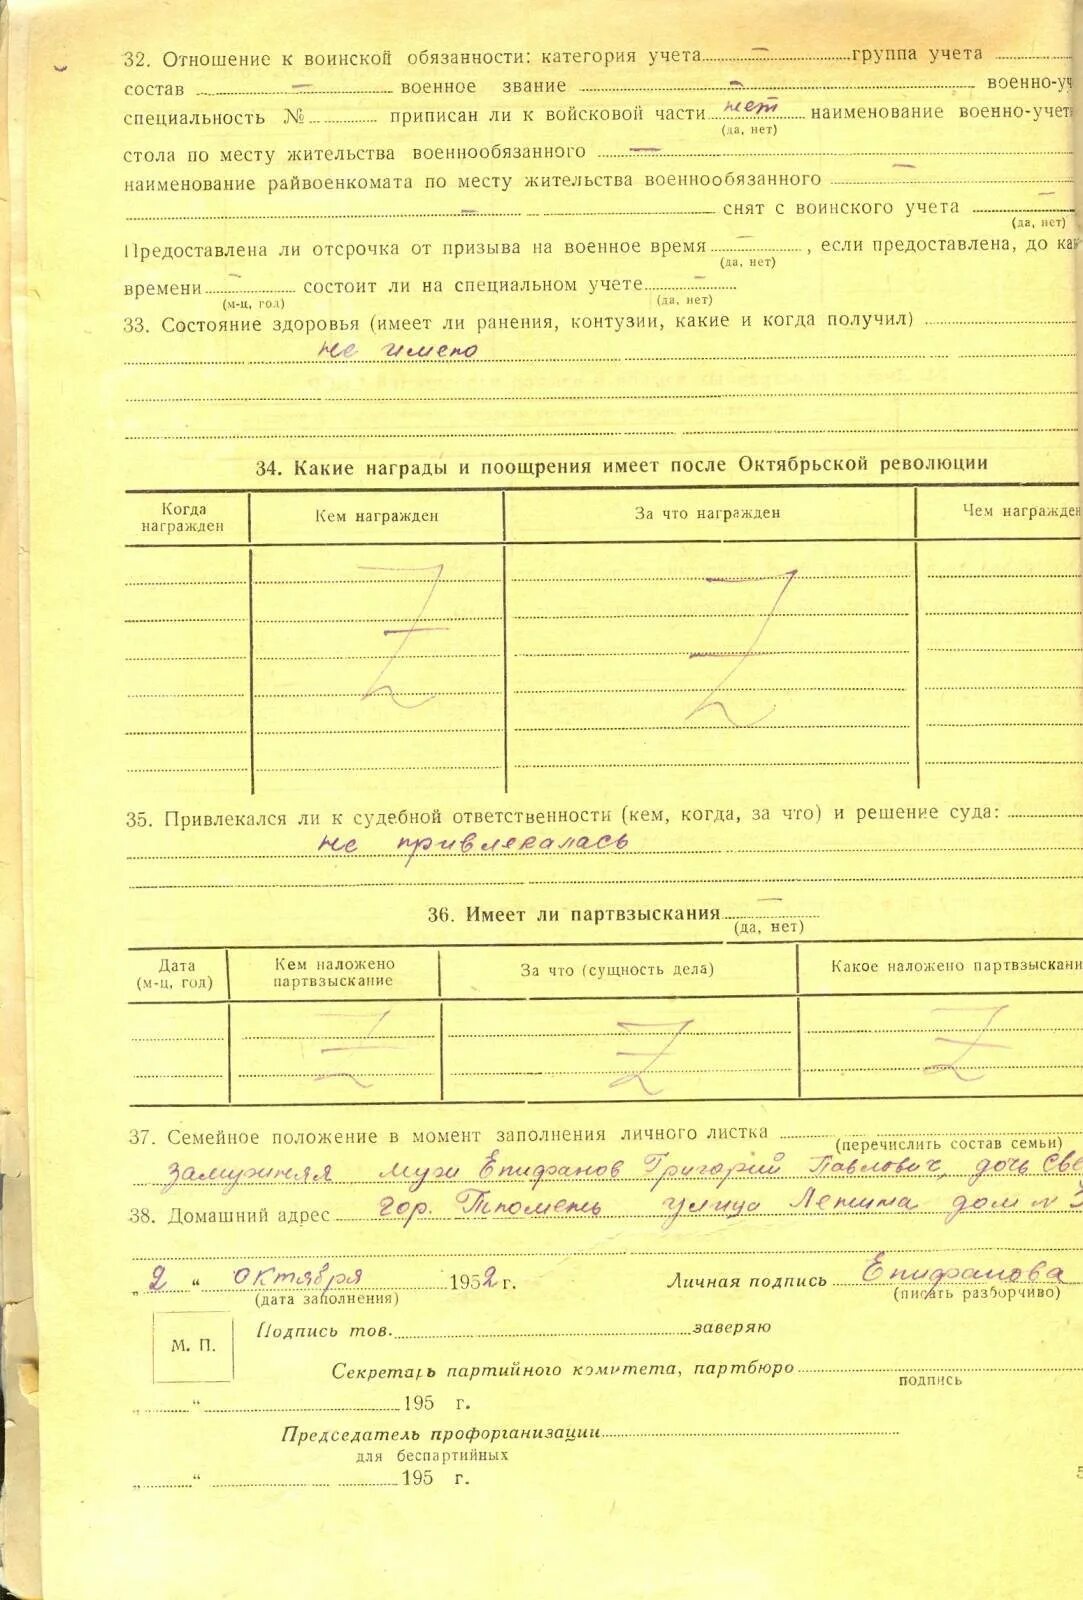 32. Отношение к воинской обязанности: категория учета — группа учета
состав — военное звание — военно-уч
специальность № приписан ли к войсковой части нет наименование военно-учет
(да, нет)
стола по месту жительства военнообязанного —
наименование райвоенкомата по месту жительства военнообязанного —
— снят с воинского учета —
(да, нет)
Предоставлена ли отсрочка от призыва на военное время — , если предоставлена, до как
(да, нет)
времени — состоит ли на специальном учете —
(м-ц, год) (да, нет)
33. Состояние здоровья (имеет ли ранения, контузии, какие и когда получил)
не имею
34. Какие награды и поощрения имеет после Октябрьской революции
Когда награжден Кем награжден За что награжден Чем награжден
Z Z
35. Привлекался ли к судебной ответственности (кем, когда, за что) и решение суда:
не привлекалась
36. Имеет ли партвзыскания —
(да, нет)
Дата Кем наложено За что (сущность дела) Какое наложено партвзыскани
(м-ц, год) партвзыскание
Z Z Z
37. Семейное положение в момент заполнения личного листка
(перечислить состав семьи)
замужняя муж Епифанов Григорий Павлович, дочь Све
38. Домашний адрес гор. Тюмень улица Ленина дом №
„ 2 “ октября 1952 г. Личная подпись Епифанова
(дата заполнения) (писать разборчиво)
М. П. Подпись тов. заверяю
Секретарь партийного комитета, партбюро
подпись
„ “ 195 г.
Председатель профорганизации
для беспартийных
„ “ 195 г.